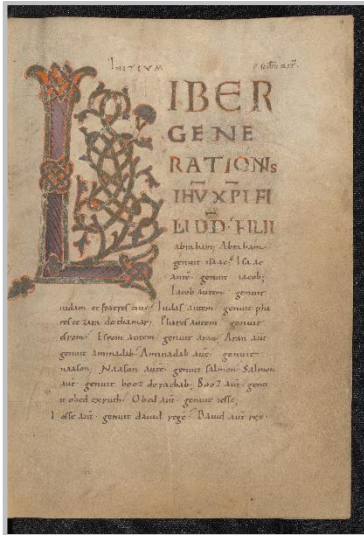 INITIUM
LIBER
GENE
RATIONIS
IHV XPI FI
LII DD FILII
abraham Abraham
genuit isaac Isaac
aute genuit iacob
Iacob autem genuit
iudam et fratres eius Iudas autem genuit pha
res et zara de thamar Phares autem genuit
esrom Esrom autem genuit aram Aram aut
genuit aminadab Aminadab aut genuit
naason Naason aute genuit salmon Salmon
aut genuit booz de rachab Booz aut genu
it obed ex ruth Obed aut genuit iesse
Iesse aut genuit david rege David aut rex